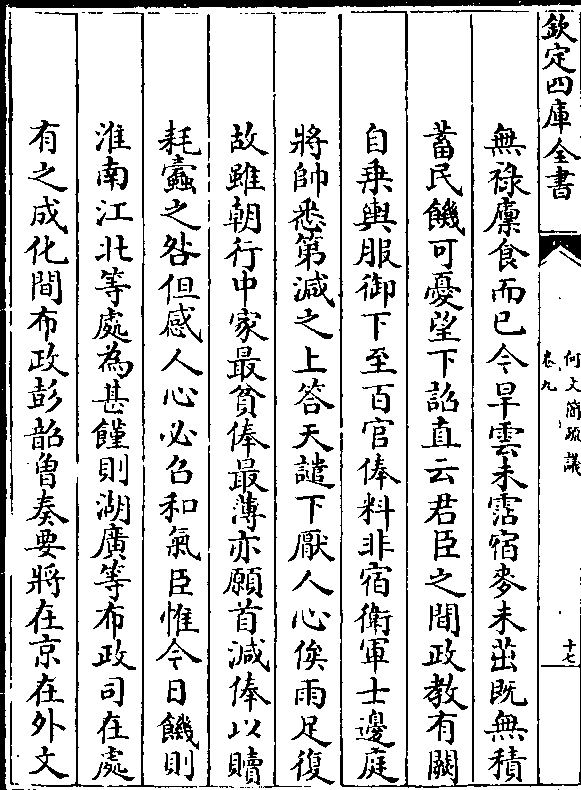 欽定四庫全書
何文簡疏議
卷九
十七
無祿廩食而已今旱雲未霑宿麥未茁既無積
蓄民饑可憂望下詔直云君臣之間政教有闕
自乗輿服御下至百官俸料非宿衛軍士邊庭
將帥悉第減之上答天譴下厭人心俟雨足復
故雖朝行中家最貧俸最薄亦願首減俸以贖
耗蠧之咎但感人心必召和氣臣惟今日饑則
淮南江北等處為甚饉則湖廣等布政司在處
有之成化間布政彭韶曽奏要將在京在外文